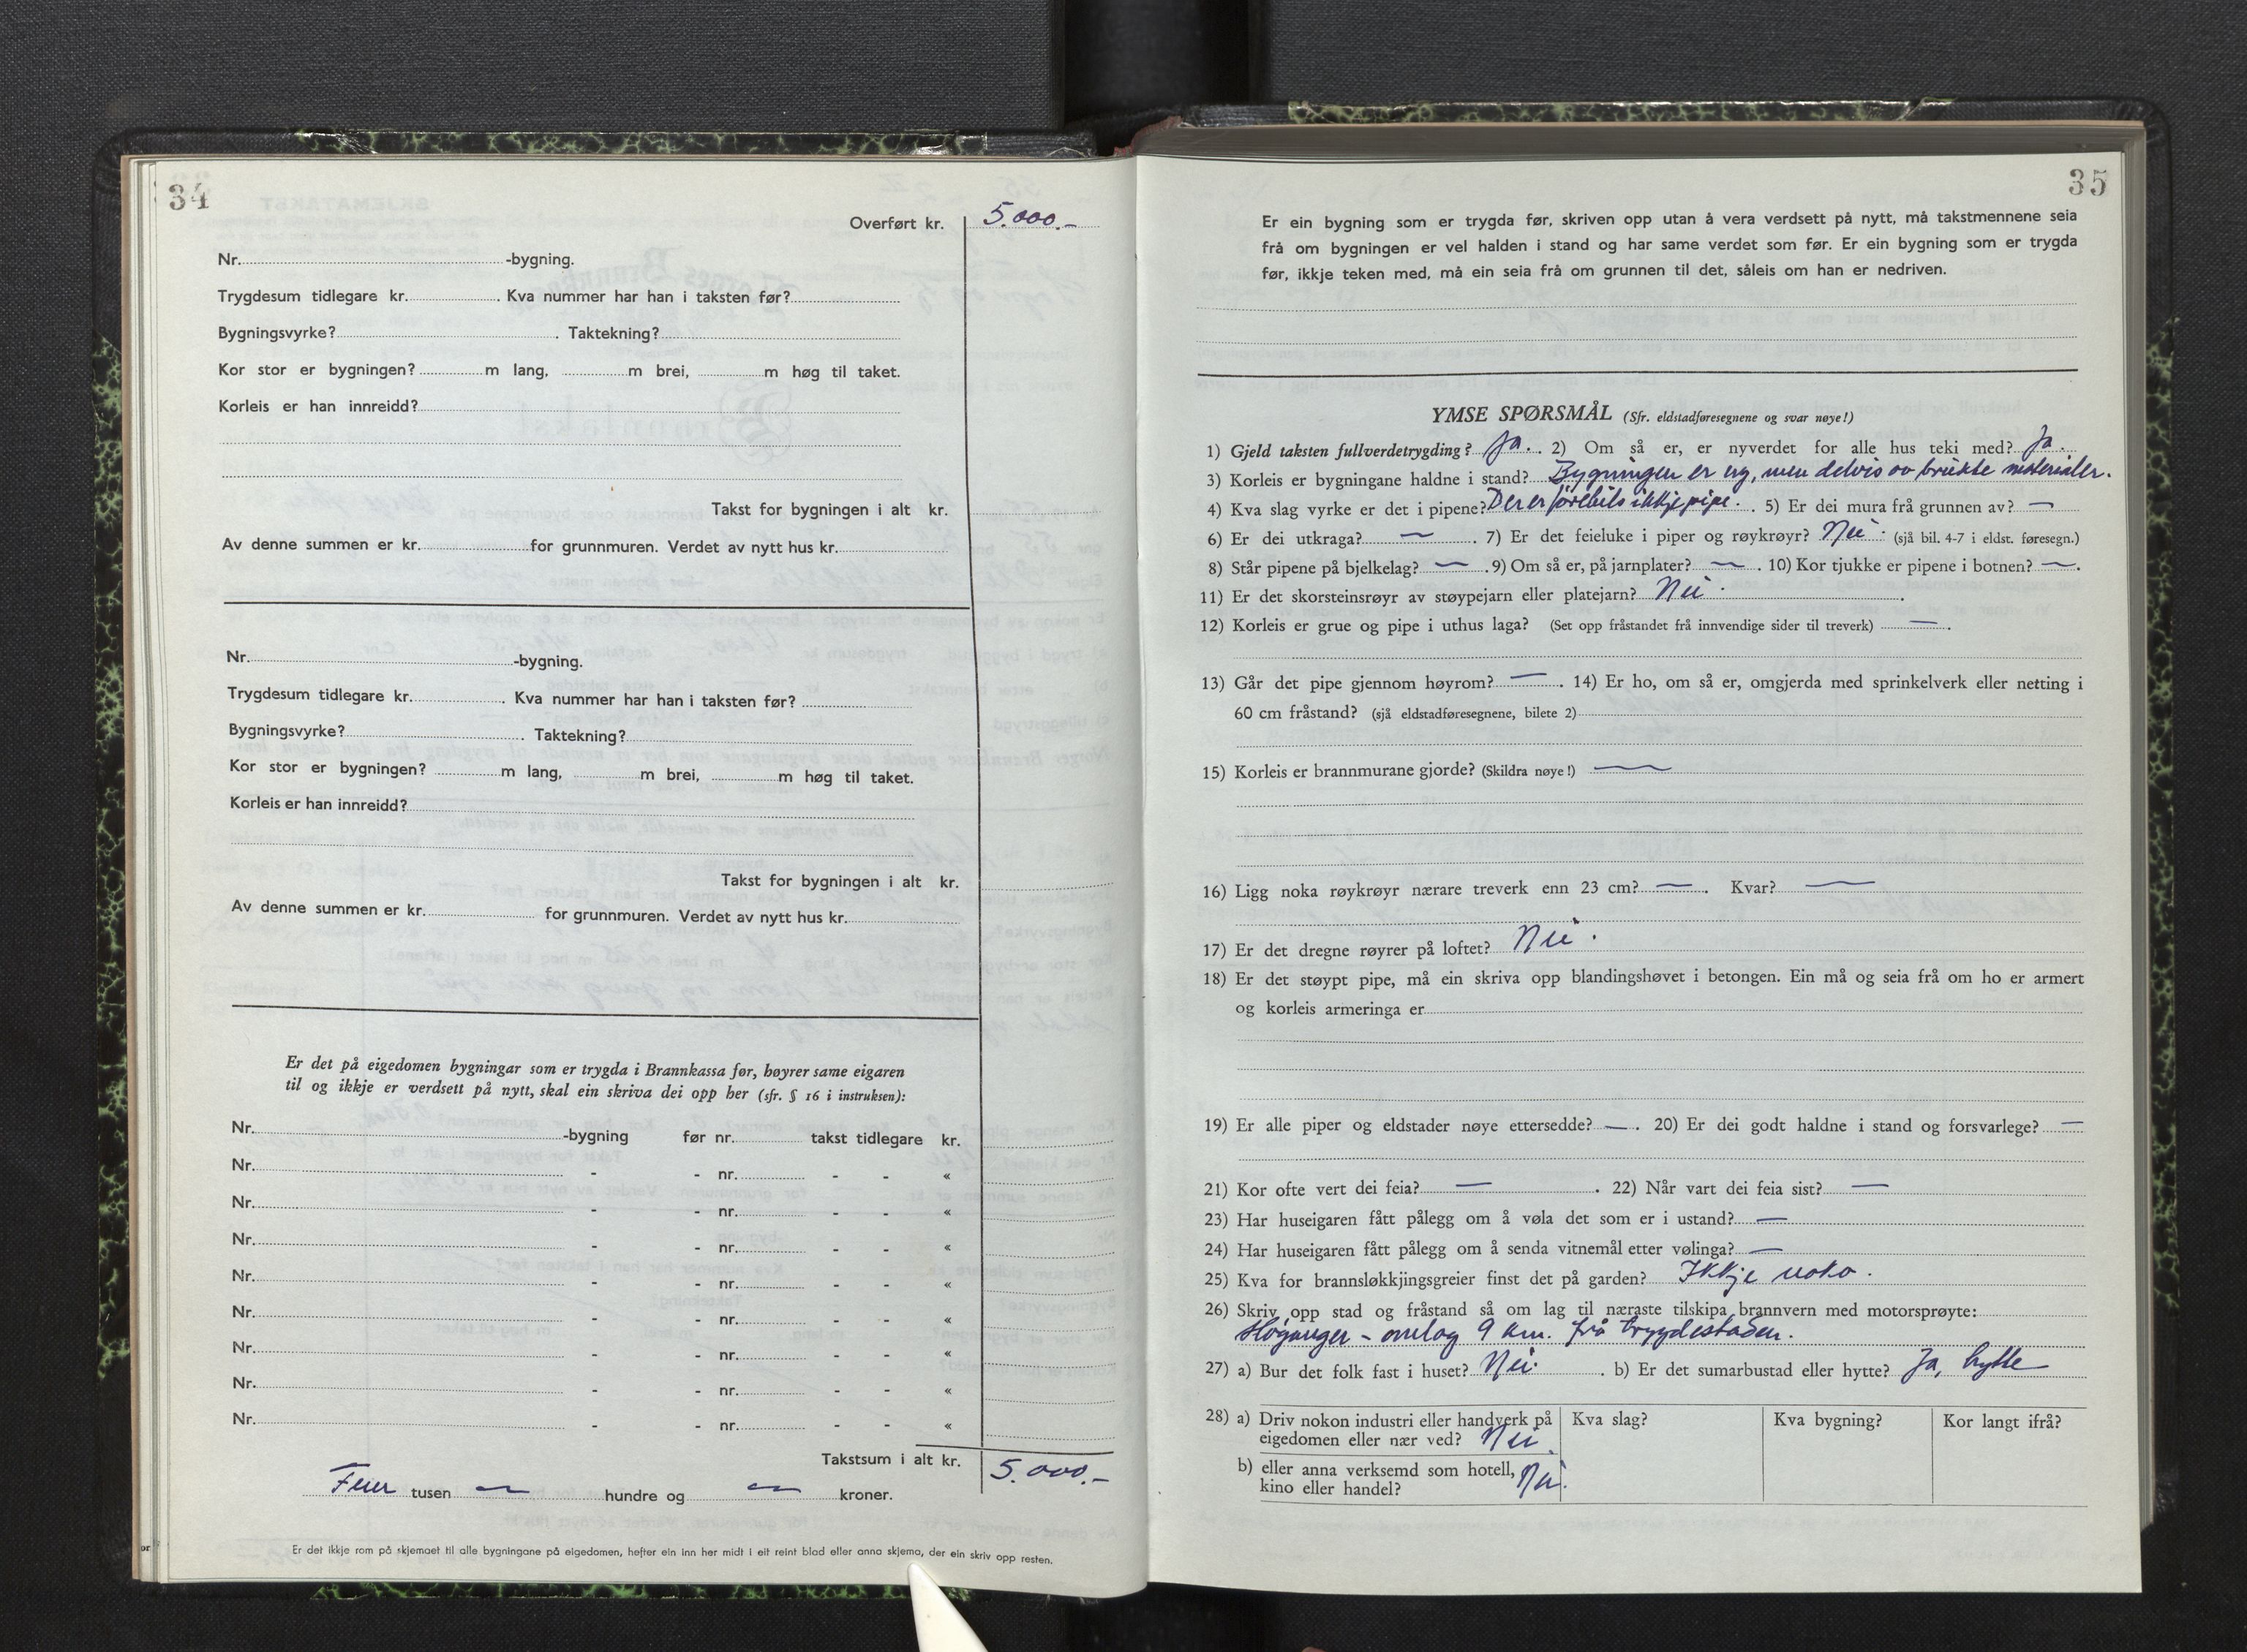 34
Overført kr. 5.000.-
Nr. -bygning.
Trygdesum tidlegare kr. . Kva nummer har han i taksten før?
Bygningsvyrke? . Taktekning?
Kor stor er bygningen? m lang, m brei, m høg til taket.
Korleis er han innreidd?
Takst for bygningen i alt kr.
Av denne summen er kr. for grunnmuren. Verdet av nytt hus kr.
Nr. -bygning.
Trygdesum tidlegare kr. . Kva nummer har han i taksten før?
Bygningsvyrke? . Taktekning?
Kor stor er bygningen? m lang, m brei, m høg til taket.
Korleis er han innreidd?
Takst for bygningen i alt kr.
Av denne summen er kr. for grunnmuren. Verdet av nytt hus kr.
Er det på eigedomen bygningar som er trygda i Brannkassa før, høyrer same eigaren
til og ikkje er verdsett på nytt, skal ein skriva dei opp her (sfr. § 16 i instruksen):
Nr. -bygning før nr. takst tidlegare kr.
Nr. - - nr. - - «
Nr. - - nr. - - «
Nr. - - nr. - - «
Nr. - - nr. - - «
Nr. - - nr. - - «
Nr. - - nr. - - «
Nr. - - nr. - - «
Nr. - - nr. - - «
Takstsum i alt kr. 5.000.-
Fem tusen — hundre og — kroner.
Er det ikkje rom på skjemaet til alle bygningane på eigedomen, hefter ein inn her midt i eit reint blad eller anna skjema, der ein skriv opp resten.
35
Er ein bygning som er trygda før, skriven opp utan å vera verdsett på nytt, må takstmennene seia
frå om bygningen er vel halden i stand og har same verdet som før. Er ein bygning som er trygda
før, ikkje teken med, må ein seia frå om grunnen til det, såleis om han er nedriven.
YMSE SPØRSMÅL (Sfr. eldstadføresegnene og svar nøye!)
1) Gjeld taksten fullverdetrygding? Ja. . 2) Om så er, er nyverdet for alle hus teki med? Ja.
3) Korleis er bygningane haldne i stand? Bygningen er ny, men delvis av brukte materialer.
4) Kva slag vyrke er det i pipene? Der er førebils ikkje pipe. . 5) Er dei mura frå grunnen av? —
6) Er dei utkraga? — . 7) Er det feieluke i piper og røykrøyr? Nei. (sjå bil. 4-7 i eldst. føresegn.)
8) Står pipene på bjelkelag? — . 9) Om så er, på jarnplater? — . 10) Kor tjukke er pipene i botnen? — .
11) Er det skorsteinsrøyr av støypejarn eller platejarn? Nei. .
12) Korleis er grue og pipe i uthus laga? (Set opp fråstandet frå innvendige sider til treverk) — .
13) Går det pipe gjennom høyrom? — . 14) Er ho, om så er, omgjerda med sprinkelverk eller netting i
60 cm fråstand? (sjå eldstadføresegnene, bilete 2)
15) Korleis er brannmurane gjorde? (Skildra nøye!) —
16) Ligg noka røykrøyr nærare treverk enn 23 cm? — . Kvar? —
17) Er det dregne røyrer på loftet? Nei.
18) Er det støypt pipe, må ein skriva opp blandingshøvet i betongen. Ein må og seia frå om ho er armert
og korleis armeringa er
19) Er alle piper og eldstader nøye ettersedde? — . 20) Er dei godt haldne i stand og forsvarlege? —
21) Kor ofte vert dei feia? — . 22) Når vart dei feia sist? —
23) Har huseigaren fått pålegg om å vøla det som er i ustand? —
24) Har huseigaren fått pålegg om å senda vitnemål etter vølinga? —
25) Kva for brannsløkkjingsgreier finst det på garden? Ikkje noko.
26) Skriv opp stad og fråstand så om lag til næraste tilskipa brannvern med motorsprøyte:
Høyanger - omlag 9 km. frå trygdestaden.
27) a) Bur det folk fast i huset? Nei. . b) Er det sumarbustad eller hytte? Ja, hytte
28) a) Driv nokon industri eller handverk på Kva slag? Kva bygning? Kor langt ifrå?
eigedomen eller nær ved? Nei.
b) eller anna verksemd som hotell, Nei.
kino eller handel?